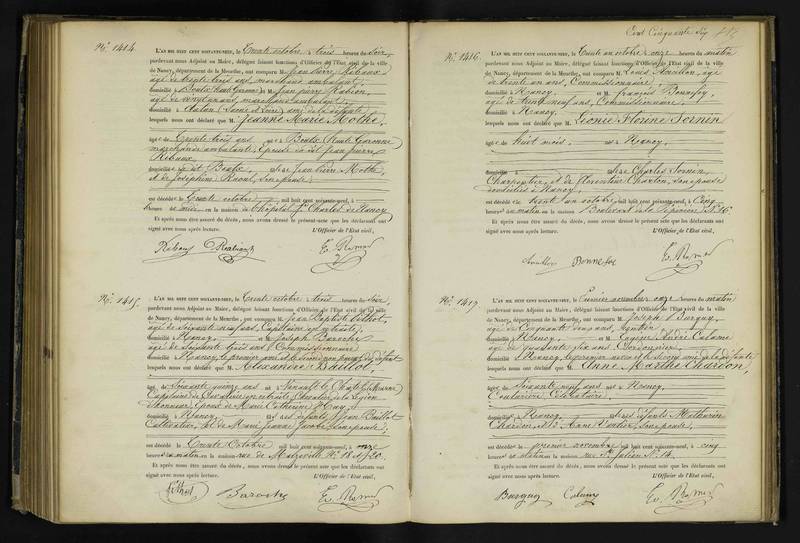 Cent Cinquante Six
N.º 1414.
L'AN MIL HUIT CENT SOIXANTE-NEUF, le trente octobre à trois heures du soir,
pardevant nous Adjoint au Maire, délégué faisant fonctions d'Officier de l'État civil de la ville
de Nancy, département de la Meurthe, ont comparu M. Jean Pierre
âgé de trente trois ans, marchand ambulant,
domicilié à (haute Garonne) et M. Jean Pierre
âgé de vingt ans, marchand ambulant,
domicilié à (Saône et Loire) ami de la défunte
lesquels nous ont déclaré que M. Jeanne Marie Mothe,
âgée de trente trois ans née à (haute Garonne)
marchande ambulante, épouse dudit Jean Pierre
domiciliée à fille de Jean Pierre Mothe
et de Joséphine son épouse
est décédée le trente octobre mil huit cent soixante-neuf, à
heures de en la maison de l'hôpital St Charles de Nancy
Et après nous être assuré du décès, nous avons dressé le présent acte que les déclarants ont
signé avec nous après lecture.
L'Officier de l'État civil,
N.º 1415.
L'AN MIL HUIT CENT SOIXANTE-NEUF, le trente octobre à trois heures du soir,
pardevant nous Adjoint au Maire, délégué faisant fonctions d'Officier de l'État civil de la ville
de Nancy, département de la Meurthe, ont comparu M. Jean Baptiste
âgé de soixante neuf ans, Capitaine en retraite,
domicilié à Nancy, et M. Joseph Baroche
âgé de soixante trois ans, Commissionnaire
domicilié à Nancy, le premier ami et le second non parent du défunt
lesquels nous ont déclaré que M. Alexandre Baillot,
âgé de soixante quinze ans né à (Hte Marne)
Capitaine de Cavalerie en retraite, Chevalier de la Légion
d'honneur, époux de Marie Catherine
domicilié à Nancy, fils des défunts Jean Baillot
Cultivateur, et de Marie Jeanne Jacobé son épouse,
est décédé le trente octobre mil huit cent soixante-neuf, à onze
heures du matin en la maison rue de Malzéville Nº 18 et 20.
Et après nous être assuré du décès, nous avons dressé le présent acte que les déclarants ont
signé avec nous après lecture.
L'Officier de l'État civil,
Baroche
N.º 1416.
L'AN MIL HUIT CENT SOIXANTE-NEUF, le trente un octobre à onze heures du matin
pardevant nous Adjoint au Maire, délégué faisant fonctions d'Officier de l'État civil de la ville
de Nancy, département de la Meurthe, ont comparu M. Louis âgé
de trente un ans, Commissionnaire,
domicilié à Nancy, et M. François Bonnefoy,
âgé de trente neuf ans, Commissionnaire,
domicilié à Nancy,
lesquels nous ont déclaré que M. Léonie Florine Sornin
âgée de huit mois, née à Nancy,
domiciliée à fille de Charles Sornin,
Charpentier, et de Florentine Charton, son épouse
domiciliés à Nancy
est décédée le trente un octobre mil huit cent soixante-neuf, à cinq
heures du matin en la maison Boulevard de la Pépinière Nº 36
Et après nous être assuré du décès, nous avons dressé le présent acte que les déclarants ont
signé avec nous après lecture.
L'Officier de l'État civil,
N.º 1417.
L'AN MIL HUIT CENT SOIXANTE-NEUF, le premier novembre à onze heures du matin
pardevant nous Adjoint au Maire, délégué faisant fonctions d'Officier de l'État civil de la ville
de Nancy, département de la Meurthe, ont comparu M. Joseph
âgé de cinquante cinq ans, rentier
domicilié à Nancy, et M. Eugène André Calame
âgé de quarante six ans Cordonnier,
domicilié à Nancy, le premier neveu et le second ami de la défunte
lesquels nous ont déclaré que M. Anne Marthe Chardon,
âgée de soixante neuf ans née à Nancy,
Couturière, Célibataire,
domiciliée à Nancy, fille des défunts Mathurin
Chardon, et d'Anne son épouse,
est décédée le premier novembre mil huit cent soixante-neuf, à cinq
heures du matin en la maison rue St Julien Nº 14.
Et après nous être assuré du décès, nous avons dressé le présent acte que les déclarants ont
signé avec nous après lecture.
L'Officier de l'État civil,